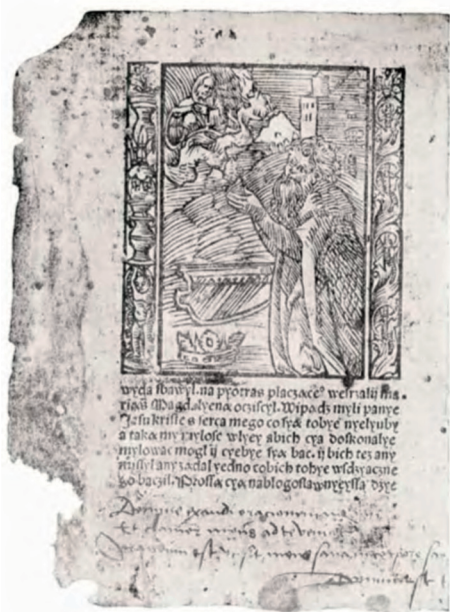 wyda sbawyl. na pyotras płaczące° wesrzalij ma
rią Magdalyenæ oczisczyl. Wipądz myli panye
Jesu kriste s serca mego co syæ tobye nyelyuby
a takæ my mylosc wlyey abich cyą doskonalye
mylowac mogl ij cyebye syą bac. ij bich tez any
myslyl any ządal yedno cobich tobye wdzyaczne
go baczil. Prossæ cyą nabłogosławnyeyssa dzye
Domine exaudi orationem meam
Et clamor meus ad te veni
est ut sit mens sana in corpore